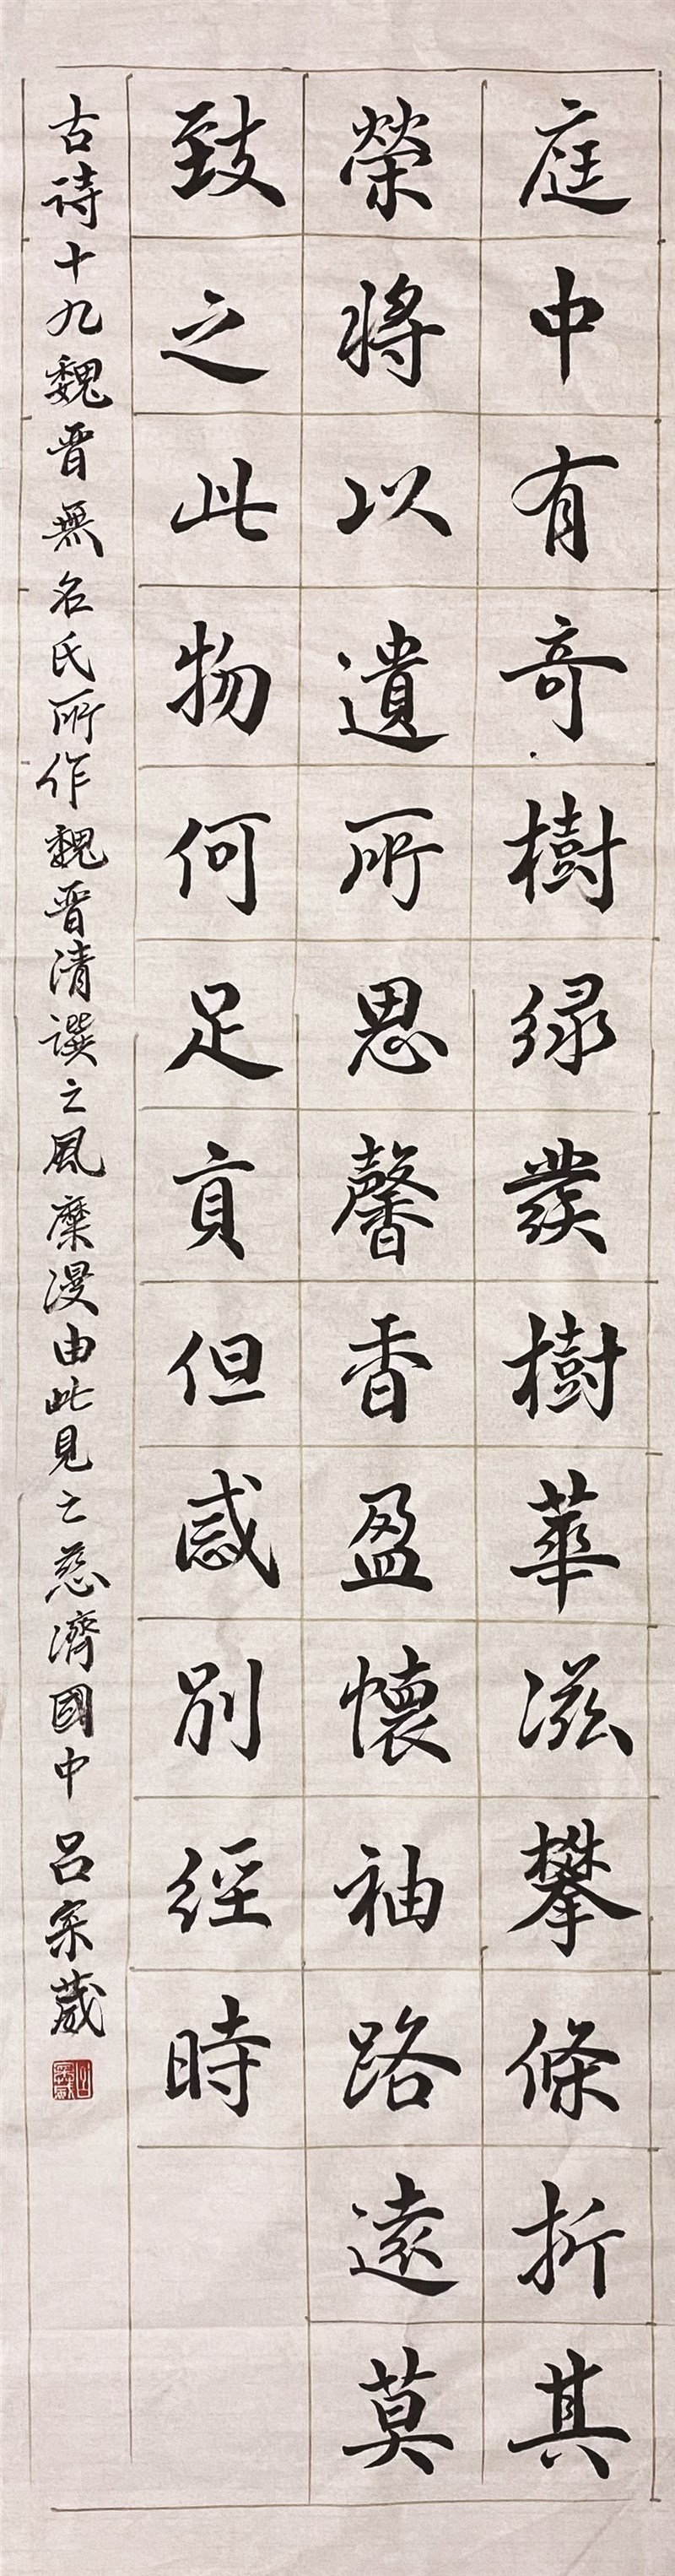 庭中有奇樹綠發樹華滋攀條折其
榮將以遺所思馨香盈懷袖路遠莫
致之此物何足貢但感別經時
古詩十九魏晉無名氏所作魏晉清譔之風糜漫由此見之慈濟國中 呂宗葳